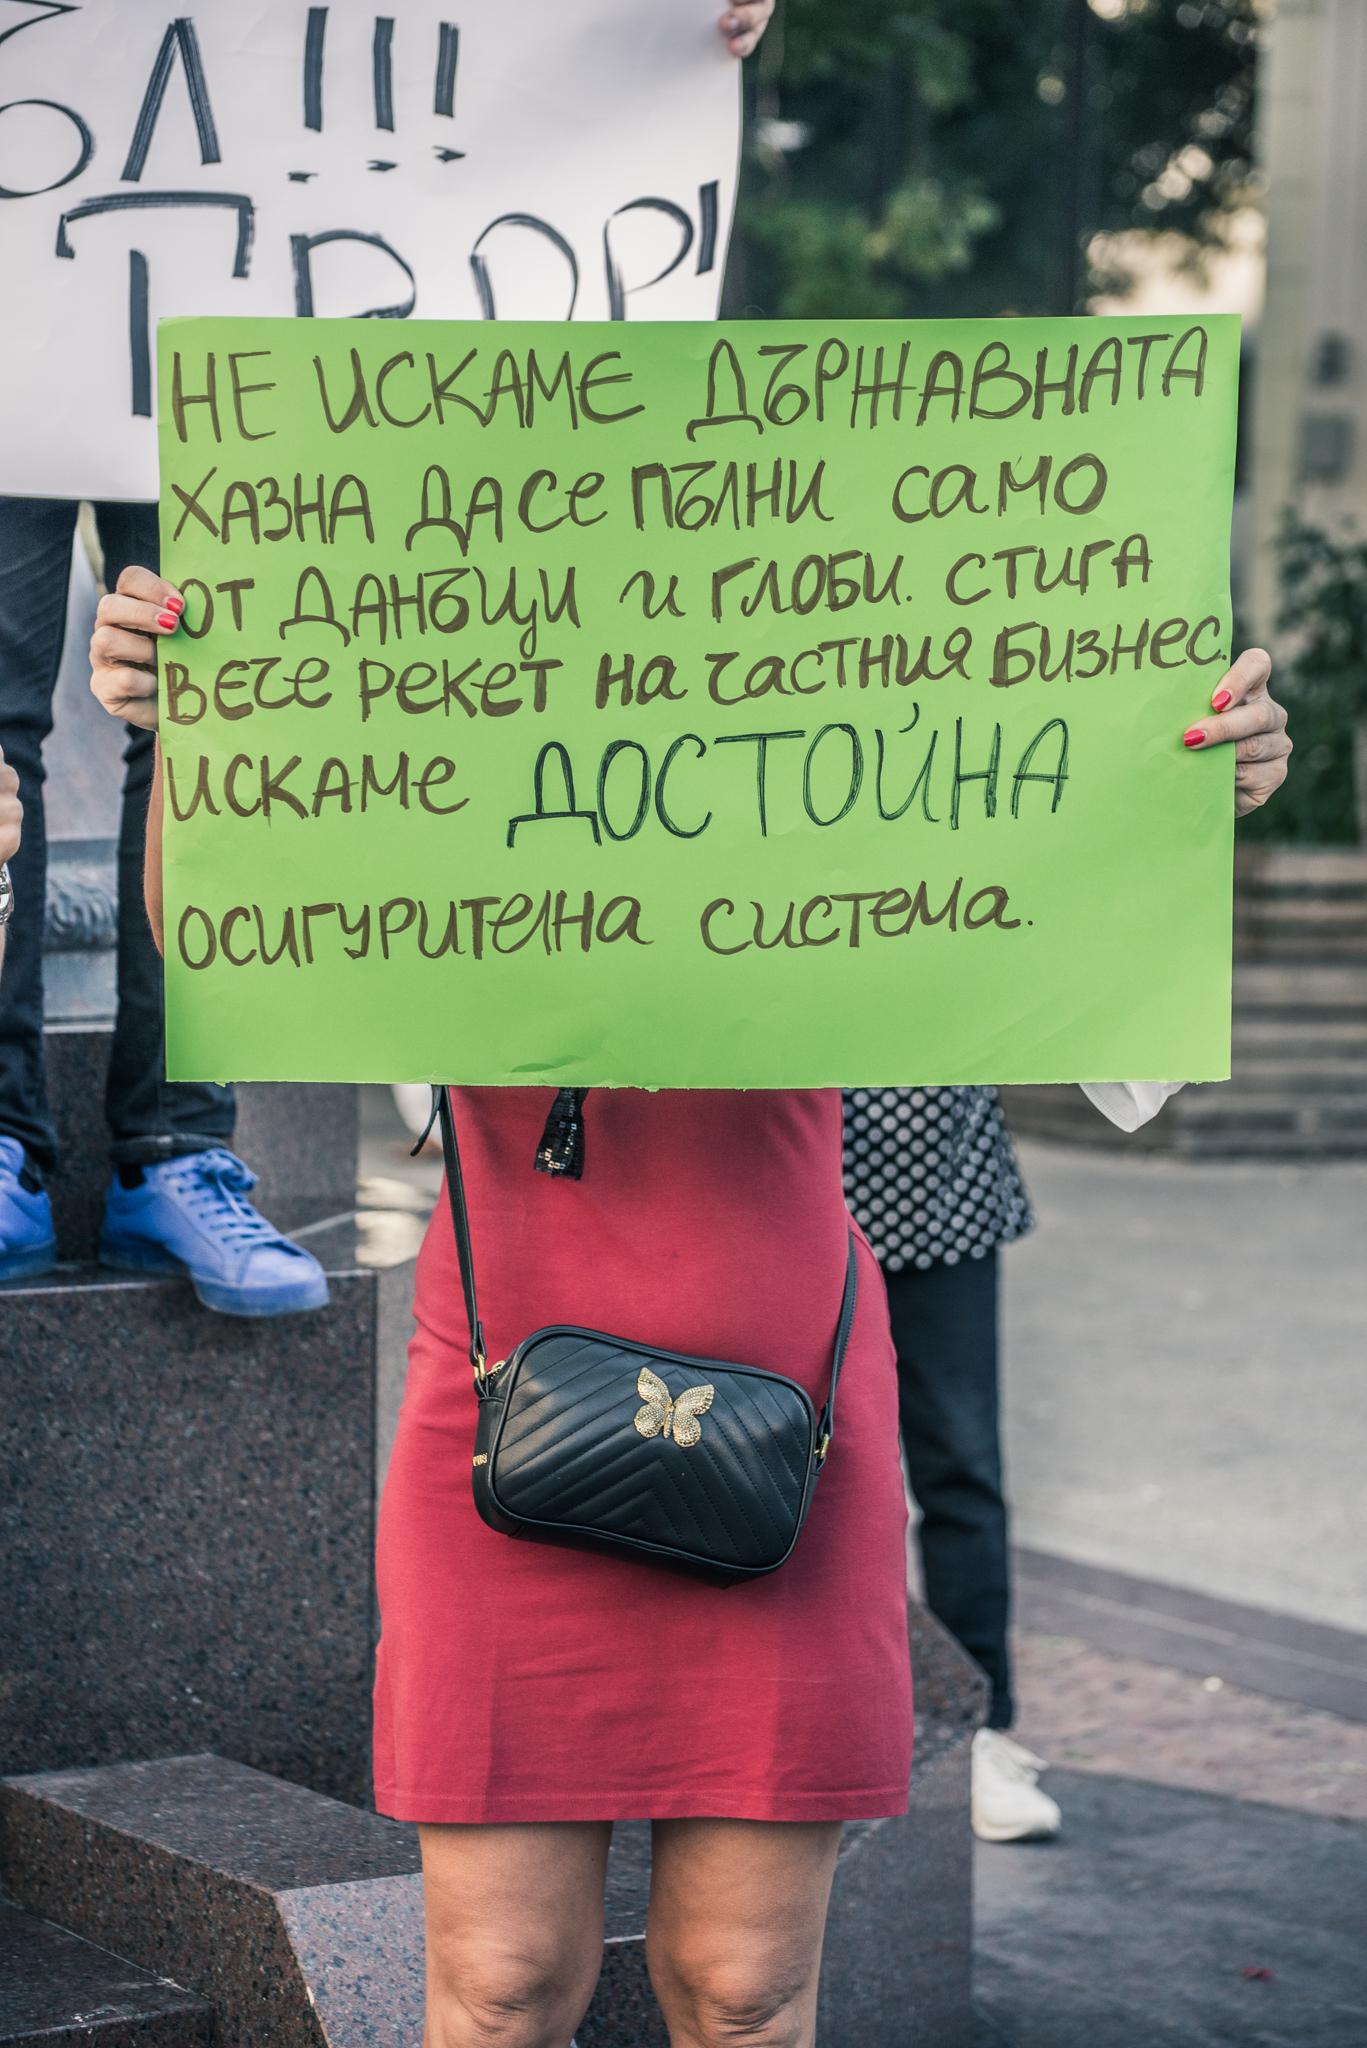 !!!
НЕ ИСКАМЕ ДЪРЖАВНАТА
ХАЗНА ДА СЕ ПЪЛНИ САМО
ОТ ДАНЪЦИ И ГЛОБИ. СТИГА
ВЕЧЕ РЕКЕТ НА ЧАСТНИЯ БИЗНЕС.
ИСКАМЕ ДОСТОЙНА
ОСИГУРИТЕЛНА СИСТЕМА.